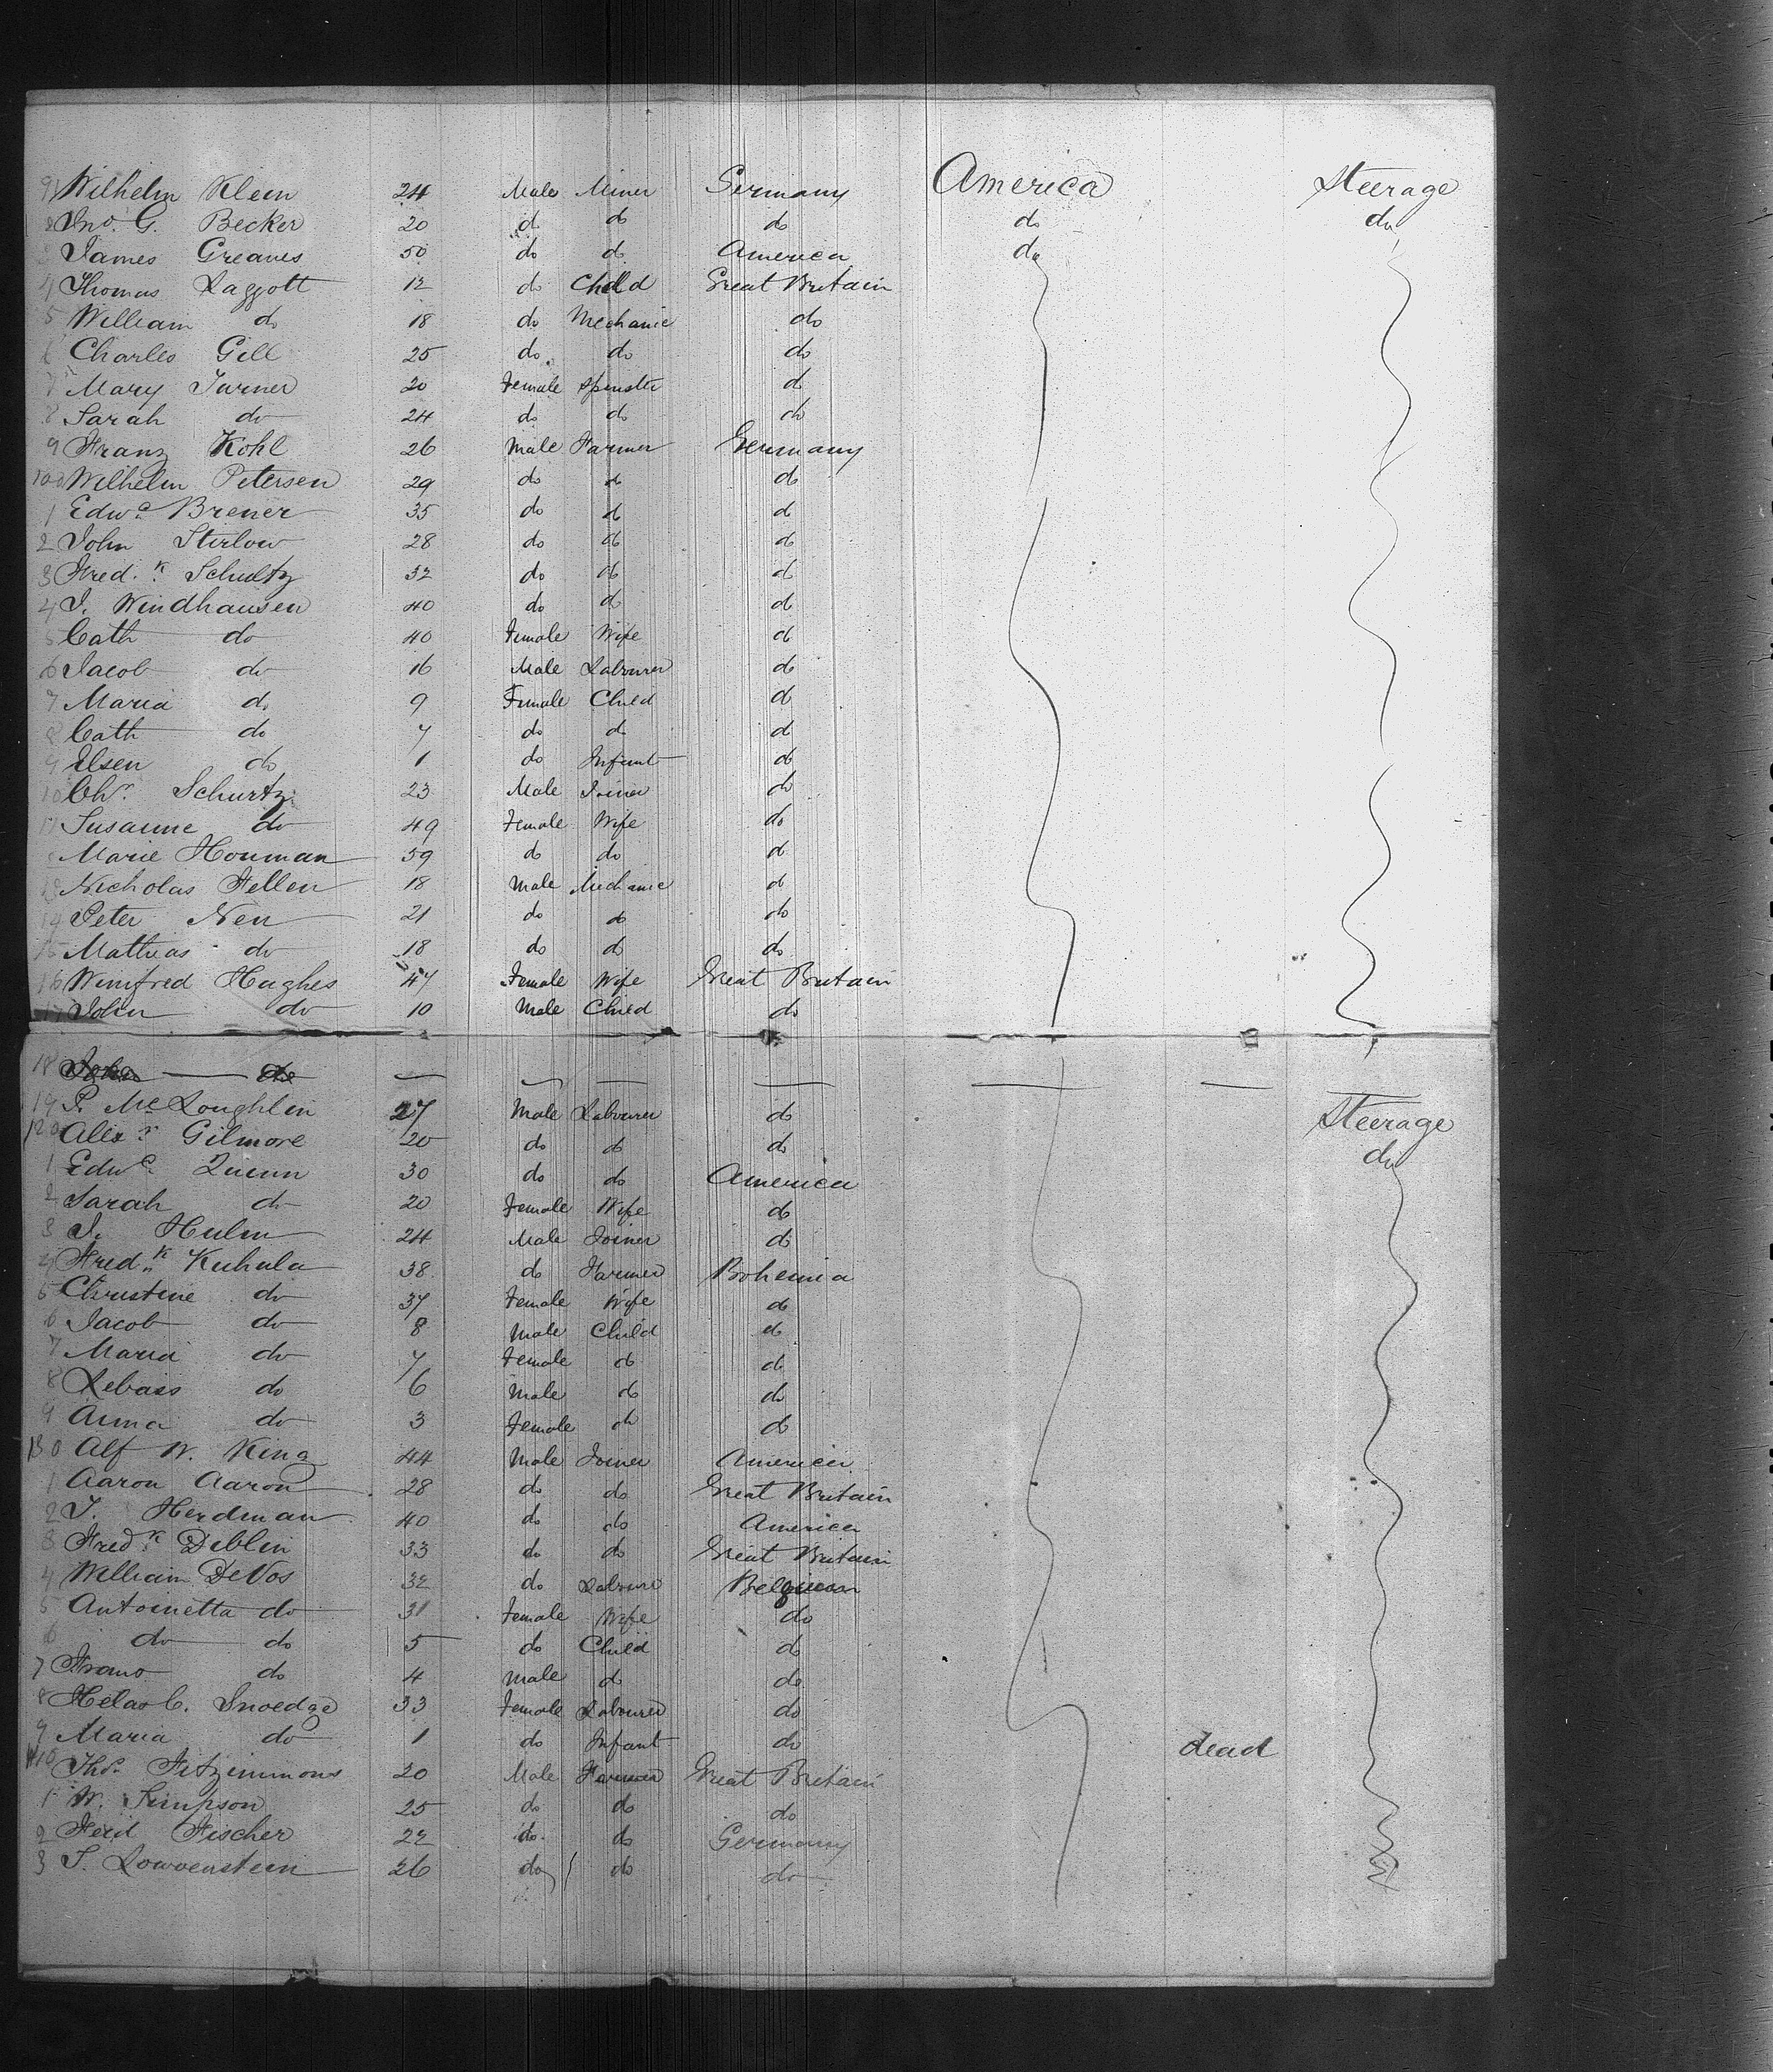 91 Wilhelm Klein 24 Male Miner Germany America Steerage
2 Jno. G. Becker 20 do do do do do
3 James Greaves 50 do do America do
4 Thomas Laggott 12 do Child Great Britain
5 William do 18 do Mechanic do
6 Charles Gill 25 do do do
7 Mary Turner 20 Female Spinster do
8 Sarah do 24 do do do
9 Franz Kohl 26 Male Farmer Germany
100 Wilhelm Petersen 29 do do do
1 Edwd. Brener 35 do do do
2 John Stirlow 28 do do do
3 Fredk. Schultz 32 do do do
4 J. Windhausen 40 do do do
5 Cath do 40 Female Wife do
6 Jacob do 16 Male Labourer do
7 Maria do 9 Female Child do
8 Cath do 7 do do do
9 Elsen do 1 do Infant do
10 Chr. Schurtz 23 Male Joiner do
11 Susanne do 49 Female Wife do
Marie Houman 59 do do do
13 Nicholas Fellen 18 Male Mechanic do
14 Peter Neu 21 do do do
15 Mathias do 18 do do do
16 Winifred Hughes 47 Female Wife Great Britain
17 John do 10 Male Child do
18 John do
19 P. McLoughlin 27 Male Labourer do Steerage
120 Alexr. Gilmore 20 do do do do
1 Edwd. Quinn 30 do do America
2 Sarah do 20 Female Wife do
3 J. Hulm 24 Male Joiner do
4 Fredk. Kuhala 38 do Farmer Bohemia
5 Christine do 37 Female Wife do
6 Jacob do 8 Male Child do
7 Maria do 7 Female do do
8 Lebass do 6 Male do do
9 Anna do 3 Female do do
130 Alf W. King 44 Male Joiner America
1 Aaron Aaron 28 do do Great Britain
2 T. Herdman 40 do do America
3 Fredk. Deblin 33 do do Great Britain
4 William DeVos 32 do Labourer Belgium
5 Antoinetta do 31 Female Wife do
6 do do 5 do Child do
7 Frano do 4 Male do do
8 Helas C. Snoedge 33 Female Labourer do
9 Maria do 1 do Infant do dead
140 Thos. Fitzimmons 20 Male Farmer Great Britain
1 W. Simpson 25 do do do
2 Ferd Fischer 22 do do Germany
3 J. Lowvenstein 26 do do do